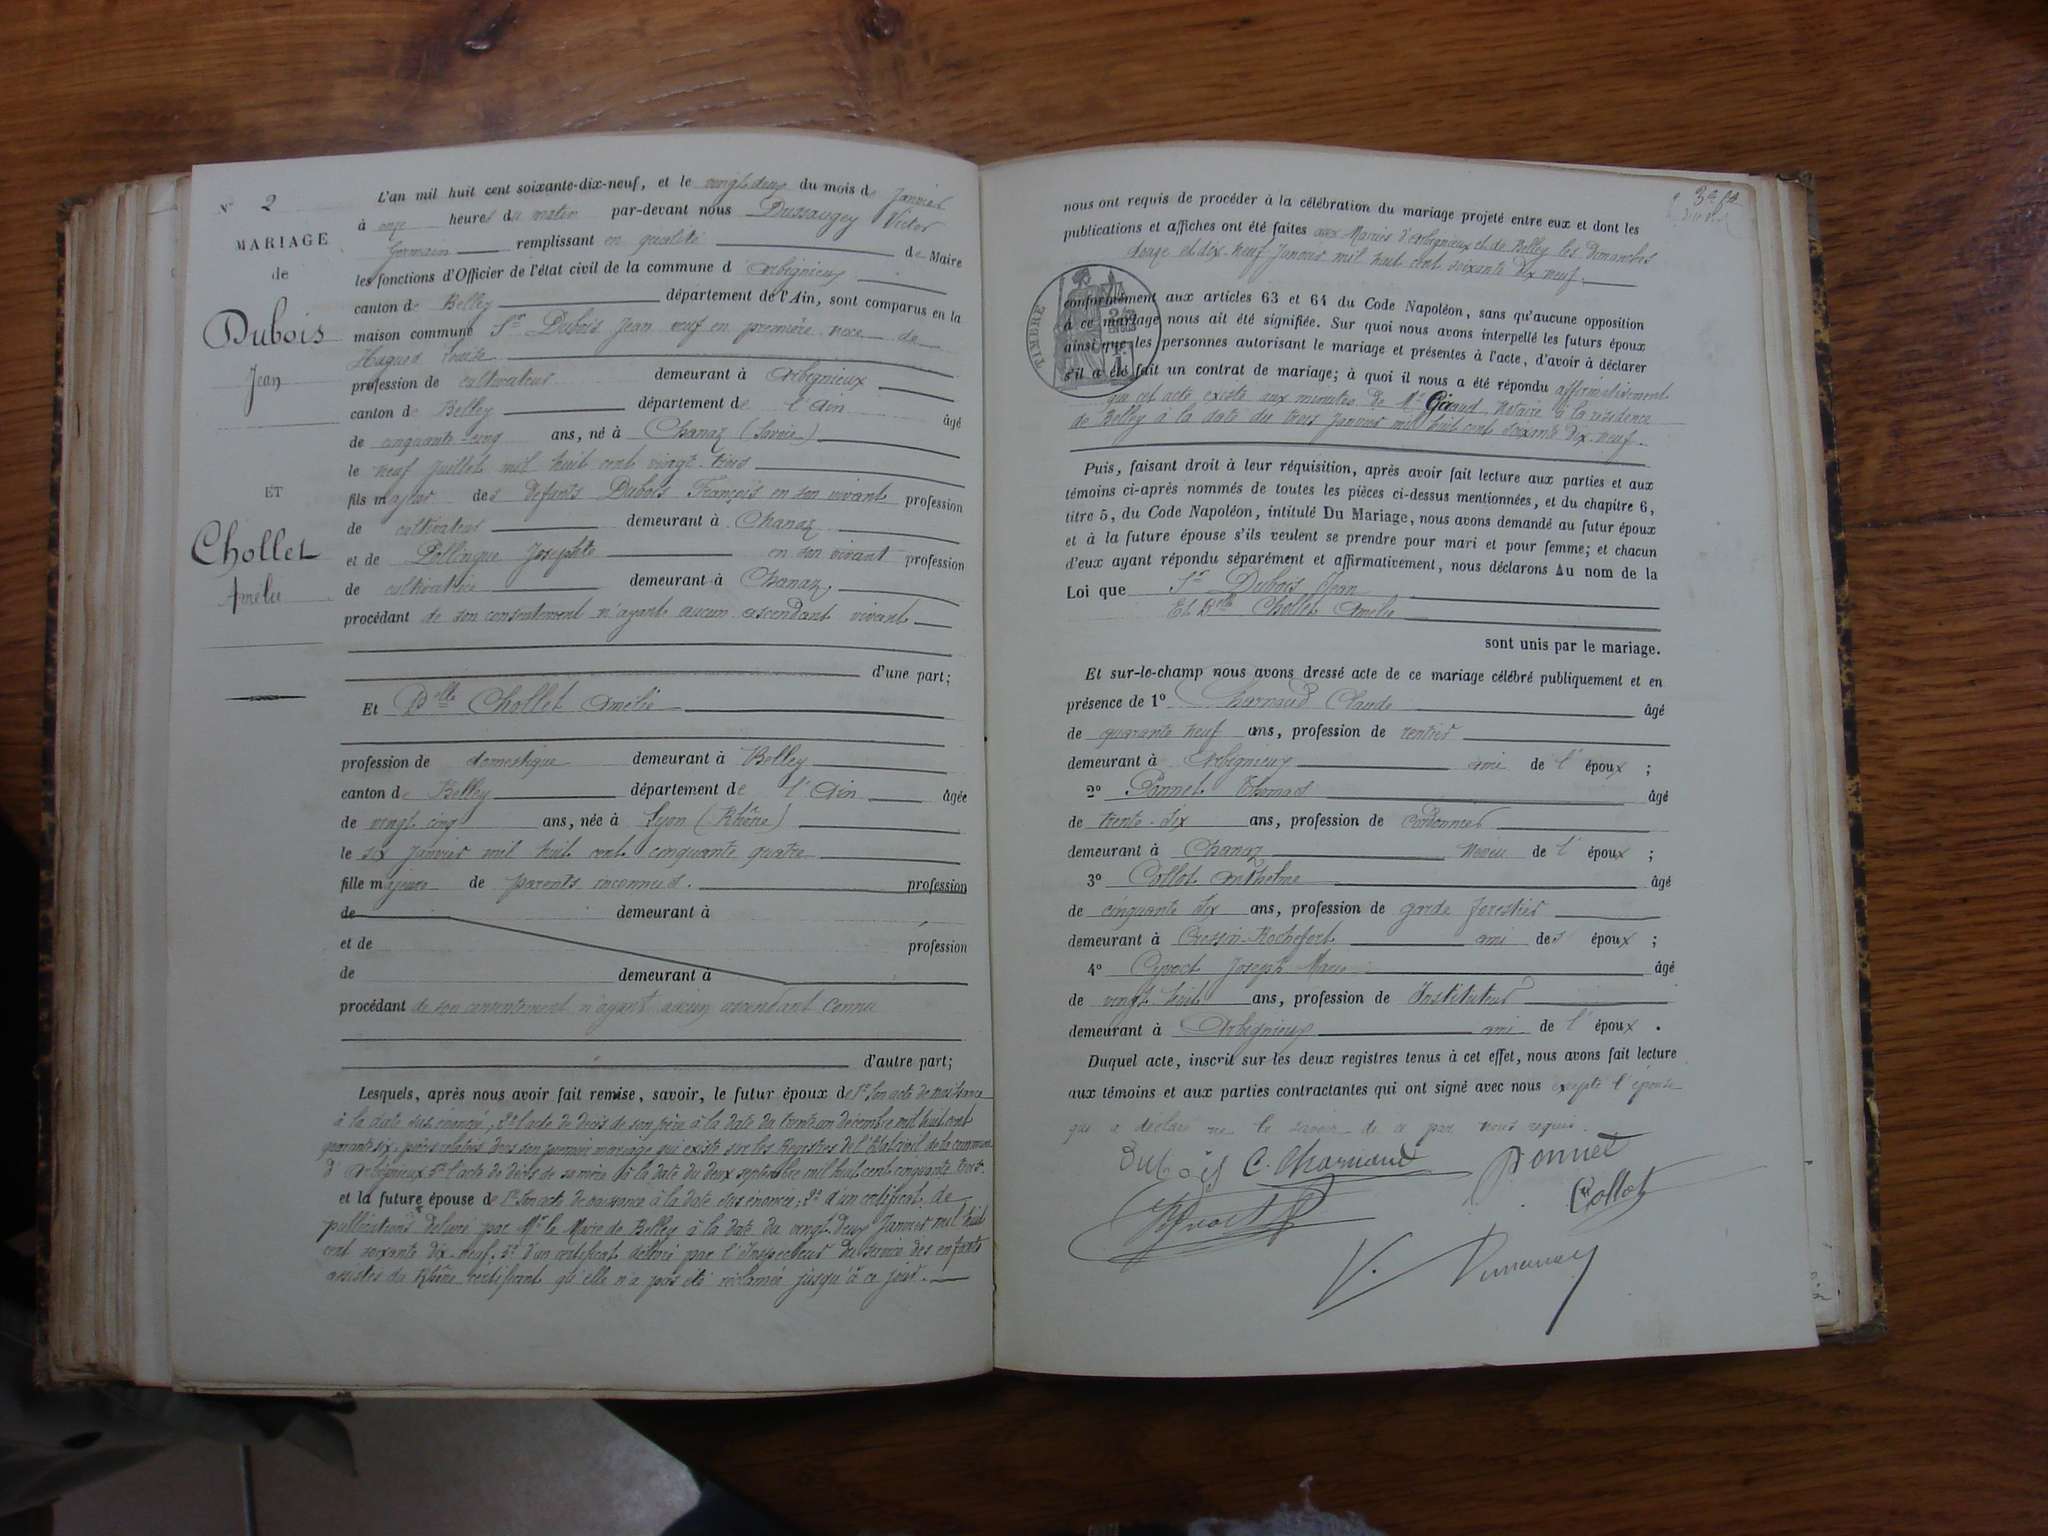 N° 2
MARIAGE
de
Dubois
Jean
ET
Chollet
Amélie
L'an mil huit cent soixante-dix-neuf, et le vingt deux du mois de Janvier
à onze heures du matin par-devant nous Dussaugey Victor
Germain remplissant en qualité de Maire
les fonctions d'Officier de l'état civil de la commune d'Arbignieux
canton de Belley département de l'Ain, sont comparus en la
maison commune Sr Dubois Jean veuf en première noce de
profession de cultivateur demeurant à Arbignieux
canton de Belley département de l'Ain âgé
de cinquante-cinq ans, né à Chanaz (Savoie)
le neuf Juillet mil huit cent vingt-trois
fils majeur des défunts Dubois François en son vivant profession
de cultivateur demeurant à Chanaz
et de Josephte en son vivant profession
de cultivatrice demeurant à Chanaz
procédant de son consentement n'ayant aucun ascendant vivant
d'une part;
Et Delle Chollet Amélie
profession de domestique demeurant à Belley
canton de Belley département de l'Ain âgée
de vingt cinq ans, née à Lyon (Rhône)
le six Janvier mil huit cent cinquante quatre
fille majeure de parents inconnus. profession
de demeurant à
et de profession
de demeurant à
procédant de son consentement n'ayant aucun ascendant connu
d'autre part;
Lesquels, après nous avoir fait remise, savoir, le futur époux de 1° son acte de naissance
à la date sus énoncé, 2° l'acte de décès de son père à la date du trente un décembre mil huit cent
quarante six, pièces relatées dans son premier mariage qui existe sur les Registres de l'Etat civil de la commune
d'Arbignieux 3° l'acte de décès de sa mère à la date du deux septembre mil huit cent cinquante trois.
et la future épouse de 1° Son acte de naissance à la date sus énoncée; 2° d'un certificat de
publications délivré par Mr le Maire de Belley à la date du vingt deux Janvier mil huit
cent soixante dix-neuf, 3° d'un certificat délivré par l'Inspecteur du service des enfants
assistés du Rhône certifiant qu'elle n'a pas été réclamée jusqu'à ce jour.
nous ont requis de procéder à la célébration du mariage projeté entre eux et dont les
publications et affiches ont été faites aux Mairies d'Arbignieux et de Belley les Dimanches
douze et dix-neuf Janvier mil huit cent soixante dix neuf.
TIMBRE
conformément aux articles 63 et 64 du Code Napoléon, sans qu'aucune opposition
à ce mariage nous ait été signifiée. Sur quoi nous avons interpellé les futurs époux
ainsi que les personnes autorisant le mariage et présentes à l'acte, d'avoir à déclarer
s'il a été fait un contrat de mariage; à quoi il nous a été répondu affirmativement
que cet acte existe aux minutes de Me Giraud Notaire à la résidence
de Belley à la date du trois Janvier mil huit cent soixante dix-neuf.
Puis, faisant droit à leur réquisition, après avoir fait lecture aux parties et aux
témoins ci-après nommés de toutes les pièces ci-dessus mentionnées, et du chapitre 6,
titre 5, du Code Napoléon, intitulé Du Mariage, nous avons demandé au futur époux
et à la future épouse s'ils veulent se prendre pour mari et pour femme; et chacun
d'eux ayant répondu séparément et affirmativement, nous déclarons Au nom de la
Loi que Sr Dubois Jean
Et Delle Chollet Amélie
sont unis par le mariage.
Et sur-le-champ nous avons dressé acte de ce mariage célébré publiquement et en
présence de 1° Charnaud Claude âgé
de quarante neuf ans, profession de rentier
demeurant à Arbignieux ami de l'époux;
2° Ponnet Thomas âgé
de trente-six ans, profession de cordonnier
demeurant à Chanaz neveu de l'époux;
3° Collot Anthelme âgé
de cinquante six ans, profession de garde forestier
demeurant à Cressin-Rochefort ami des époux;
4° Joseph Marie âgé
de vingt huit ans, profession de Instituteur
demeurant à Arbignieux ami de l'époux.
Duquel acte, inscrit sur les deux registres tenus à cet effet, nous avons fait lecture
aux témoins et aux parties contractantes qui ont signé avec nous excepté l'épouse
qui a déclaré ne le savoir de ce par nous requis.
Dubois C. Charnaud Ponnet
Collot
V. Dussaugey